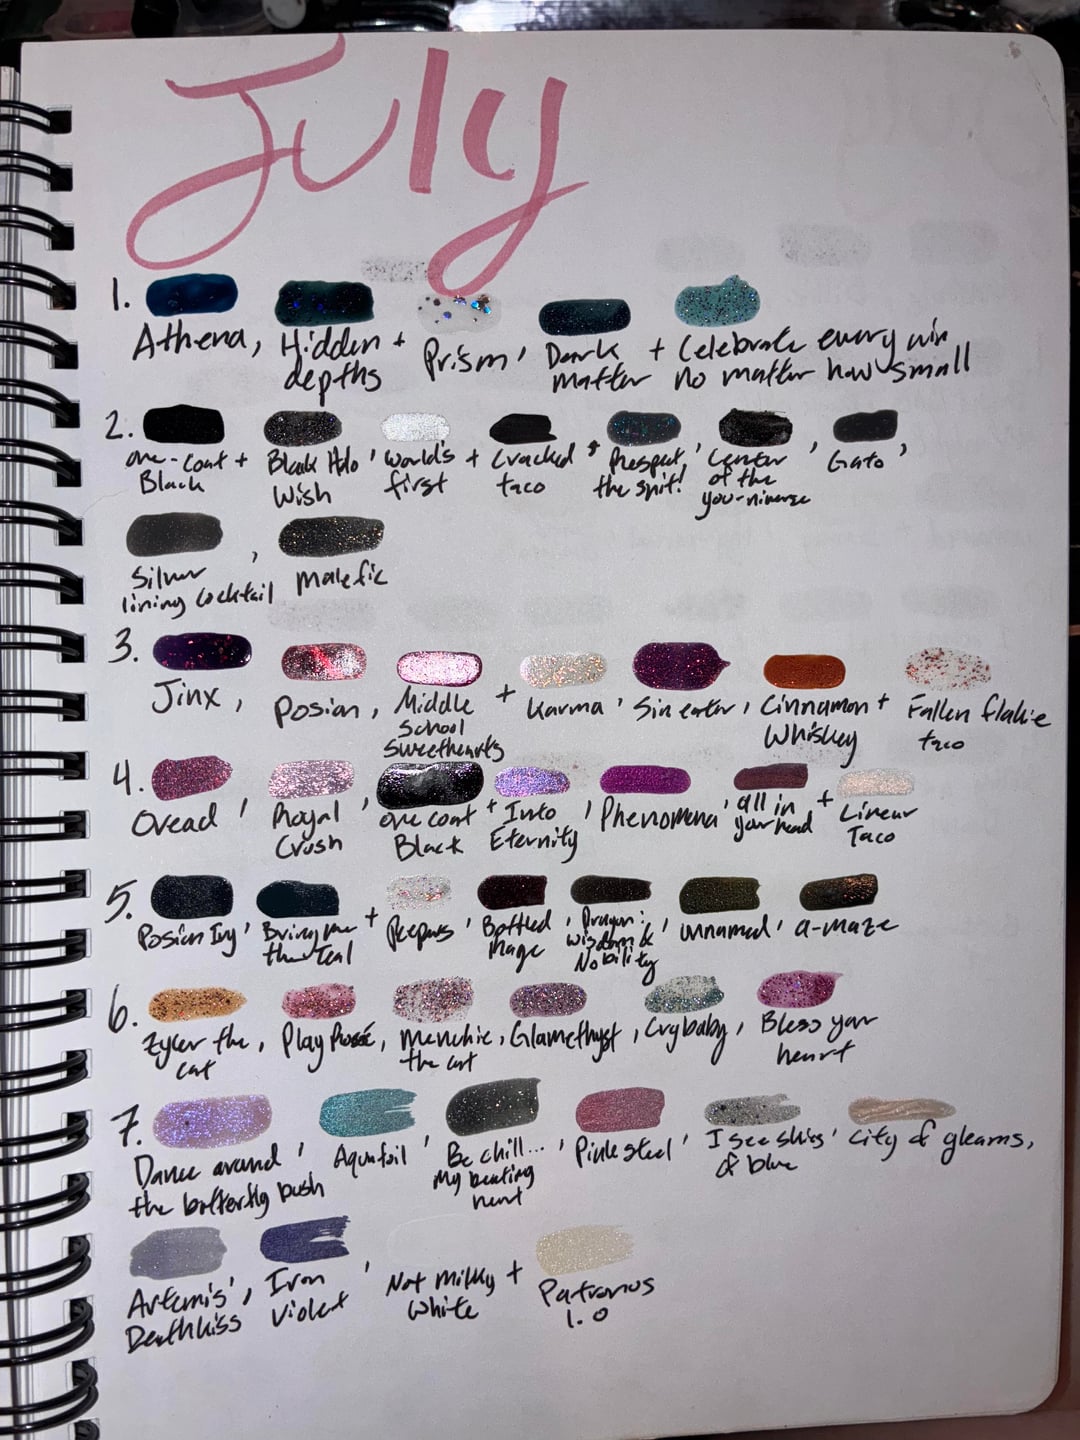 July
1. Athena, Hidden + Prism, Dark + Celebrate every win
depths matter no matter how small
2. one-coat + Black Holo, World's + Cracked + Respect, Center, Gato,
Black Wish first taco the spit! of the
you-niverse
Silver, Malefic
lining cocktail
3. Jinx, Posion, Middle + Karma, Sin eater, Cinnamon + Fallen flakie
School Whiskey taco
Sweethearts
4. Oread, Royal, one coat + Into, Phenomena, all in + Linear
Crush Black Eternity your head Taco
5. Posion Ivy, Bring me + Peepers, Bottled, Dragon:, unnamed, a-maze
the Teal Rage wisdom &
Nobility
6. Zyler the, Play Rosé, Menchie, Glamethyst, Crybaby, Bless your
cat the cat heart
7. Dance around, Aquafoil, Be chill..., Pink steel, I see skies, City of gleams,
the butterfly bush My beating of blue
heart
Artemis', Iron, Not Milky + Patronus
Deathkiss Violet White 1.0